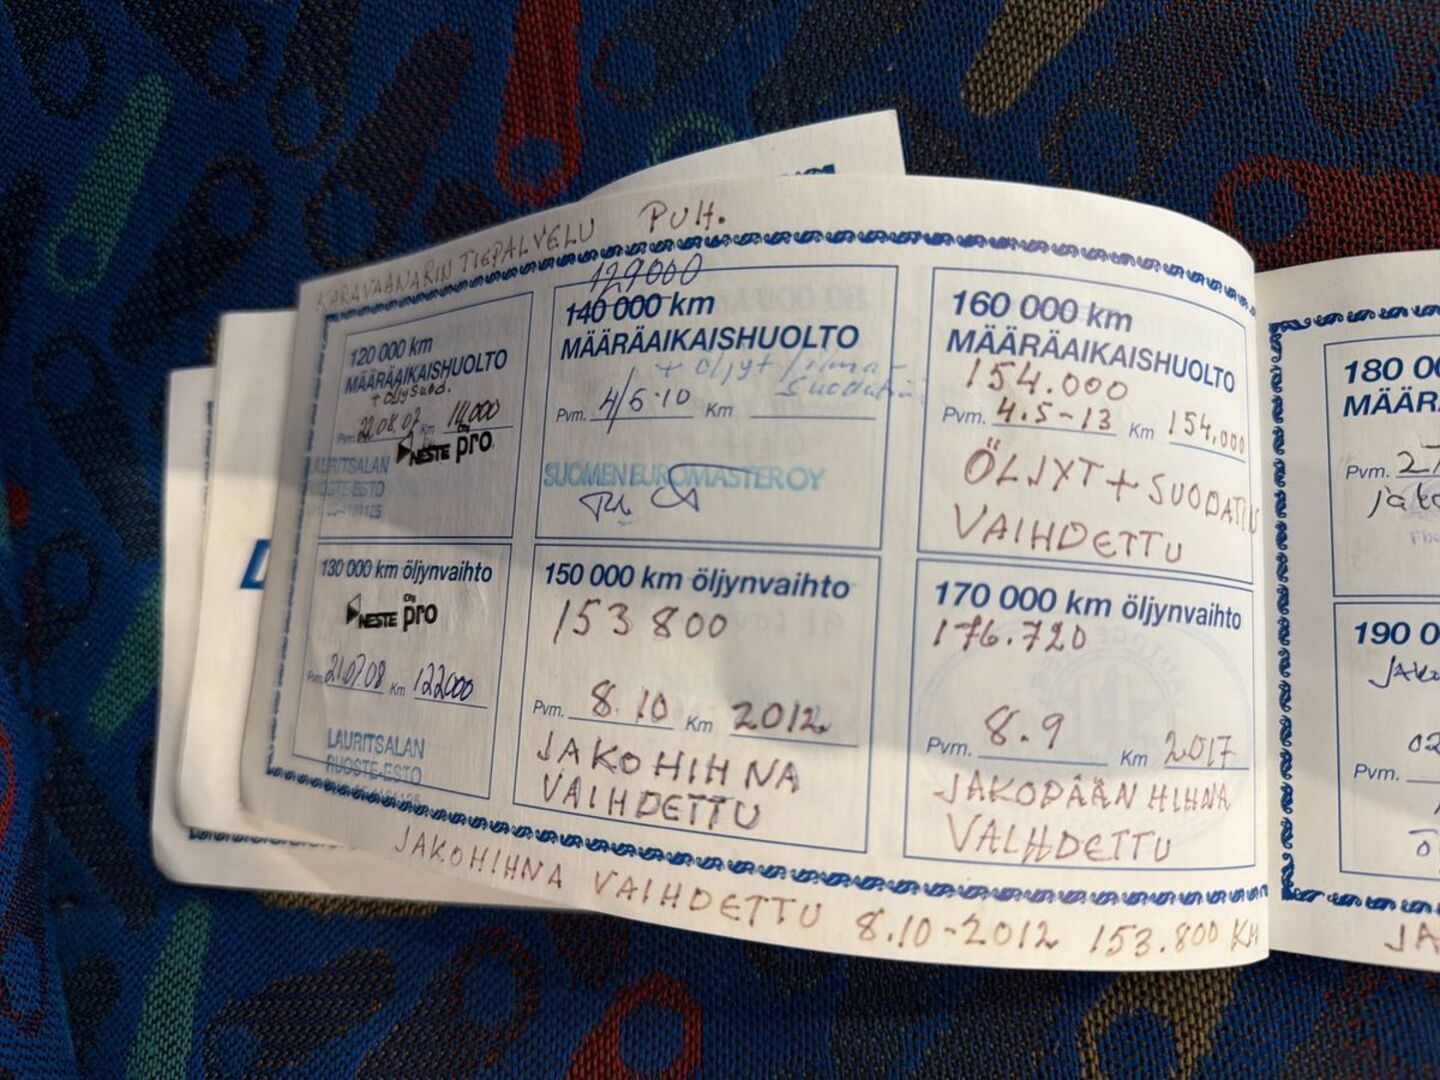 KARAVAANARIN TIEPALVELU PUH.
120 000 km
MÄÄRÄAIKAISHUOLTO
+ öljysuod.
Pvm. 22.08.07 Km
NESTE Oily pro
LAURITSALAN
RUOSTE-ESTO
129000
140 000 km
MÄÄRÄAIKAISHUOLTO
+ öljyt / ilma-
suodatin
Pvm. 4/5.10 Km
SUOMEN EUROMASTER OY
160 000 km
MÄÄRÄAIKAISHUOLTO
154.000
Pvm. 4.5-13 Km 154,000
ÖLJYT + SUODATIN
VAIHDETTU
130 000 km öljynvaihto
NESTE Oily pro
Pvm. 21.07.08 Km 122000
LAURITSALAN
RUOSTE-ESTO
150 000 km öljynvaihto
153 800
Pvm. 8.10 Km 2012
JAKOHIHNA
VAIHDETTU
170 000 km öljynvaihto
176.720
Pvm. 8.9 Km 2017
JAKOPÄÄN HIHNA
VAIHDETTU
JAKOHIHNA VAIHDETTU 8.10-2012 153.800 KM
180 0
MÄÄR
Pvm. 27
190 0
Pvm.
JA